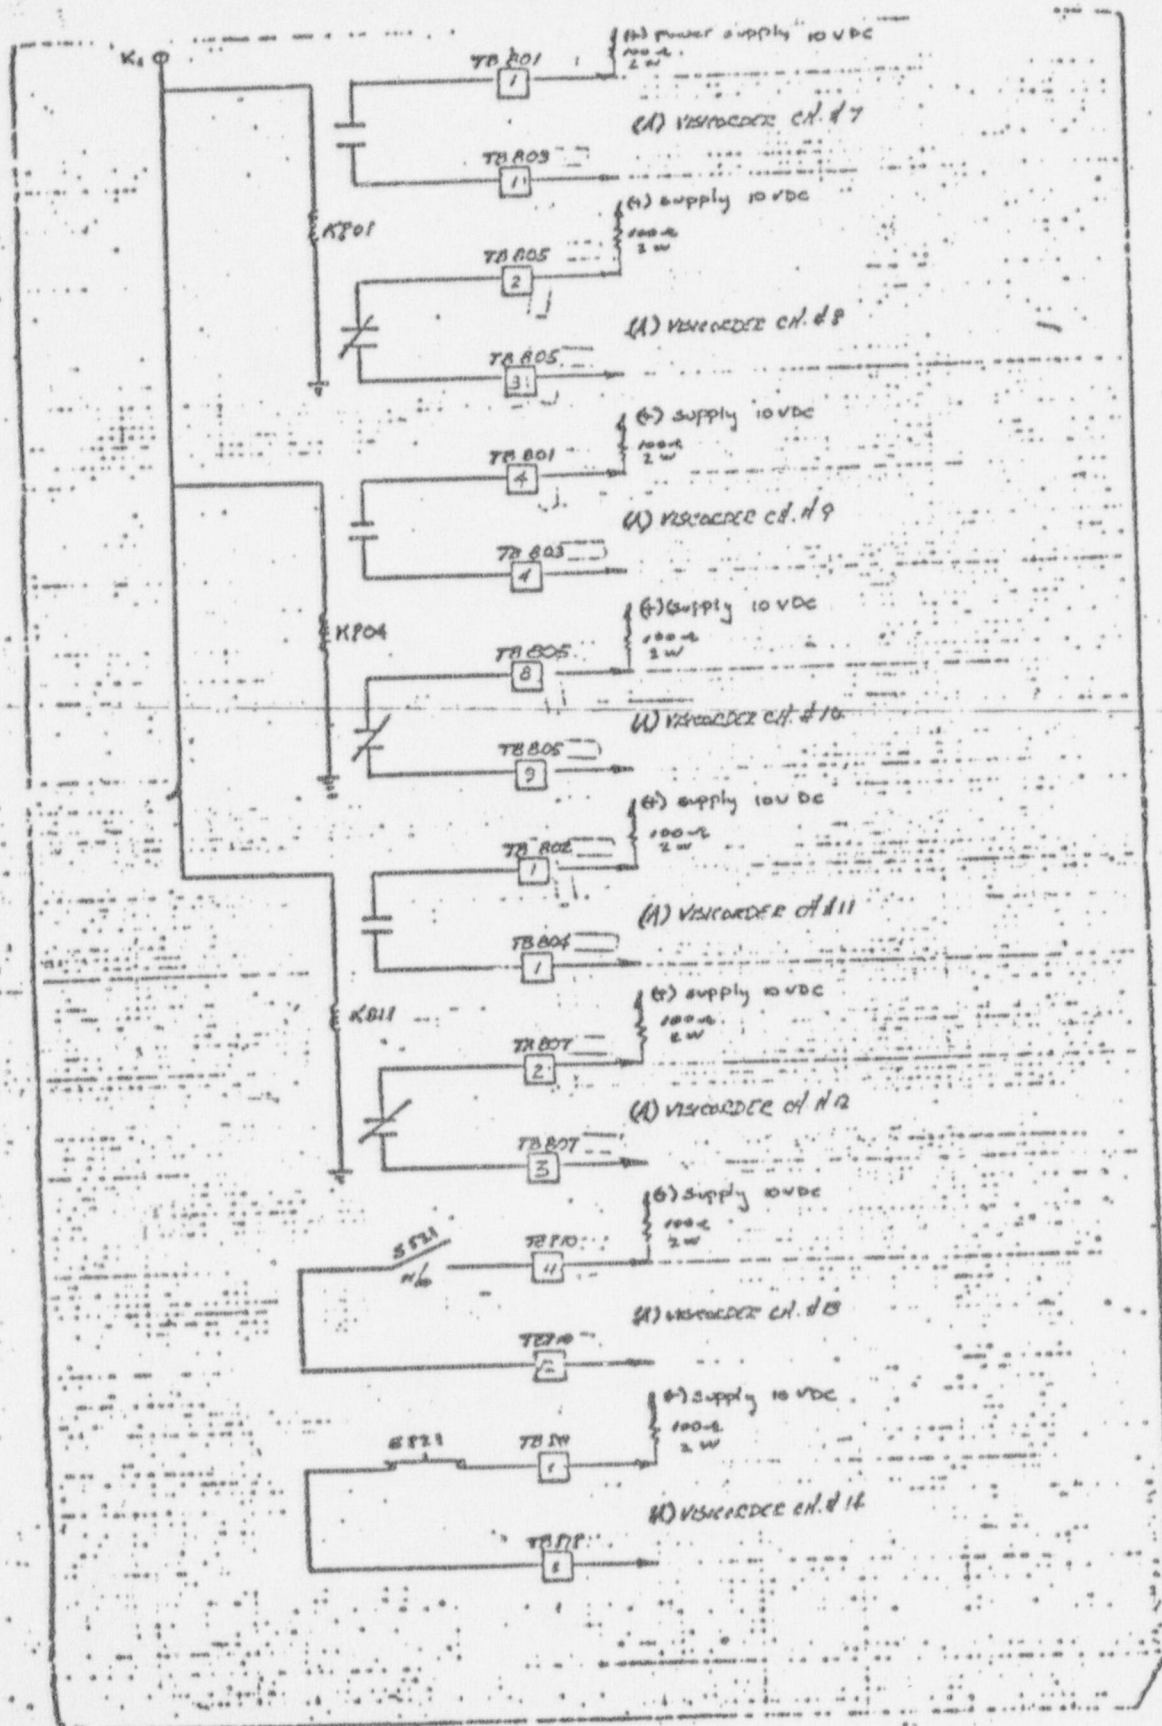 K1
TB 801
1
(+) power supply 10 VDC
100Ω
2 W
(A) VISICORDER CH. #7
TB 803
1
(+) supply 10 VDC
100Ω
2 W
TB 805
2
(A) VISICORDER CH. #8
TB 805
3
(+) supply 10 VDC
100Ω
2 W
TB 801
4
(A) VISICORDER CH. #9
TB 803
4
(+) supply 10 VDC
100Ω
2 W
TB 805
8
(A) VISICORDER CH. #10
TB 805
9
(+) supply 10 V DC
100Ω
2 W
TB 802
1
(A) VISICORDER CH #11
TB 804
1
K811
(+) supply 10 VDC
100Ω
2 W
TB 807
2
(A) VISICORDER CH #12
TB 807
3
(+) supply 10 VDC
100Ω
2 W
N/O
4
(A) VISICORDER CH. #13
2
(+) supply 10 VDC
100Ω
2 W
(A) VISICORDER CH. #14